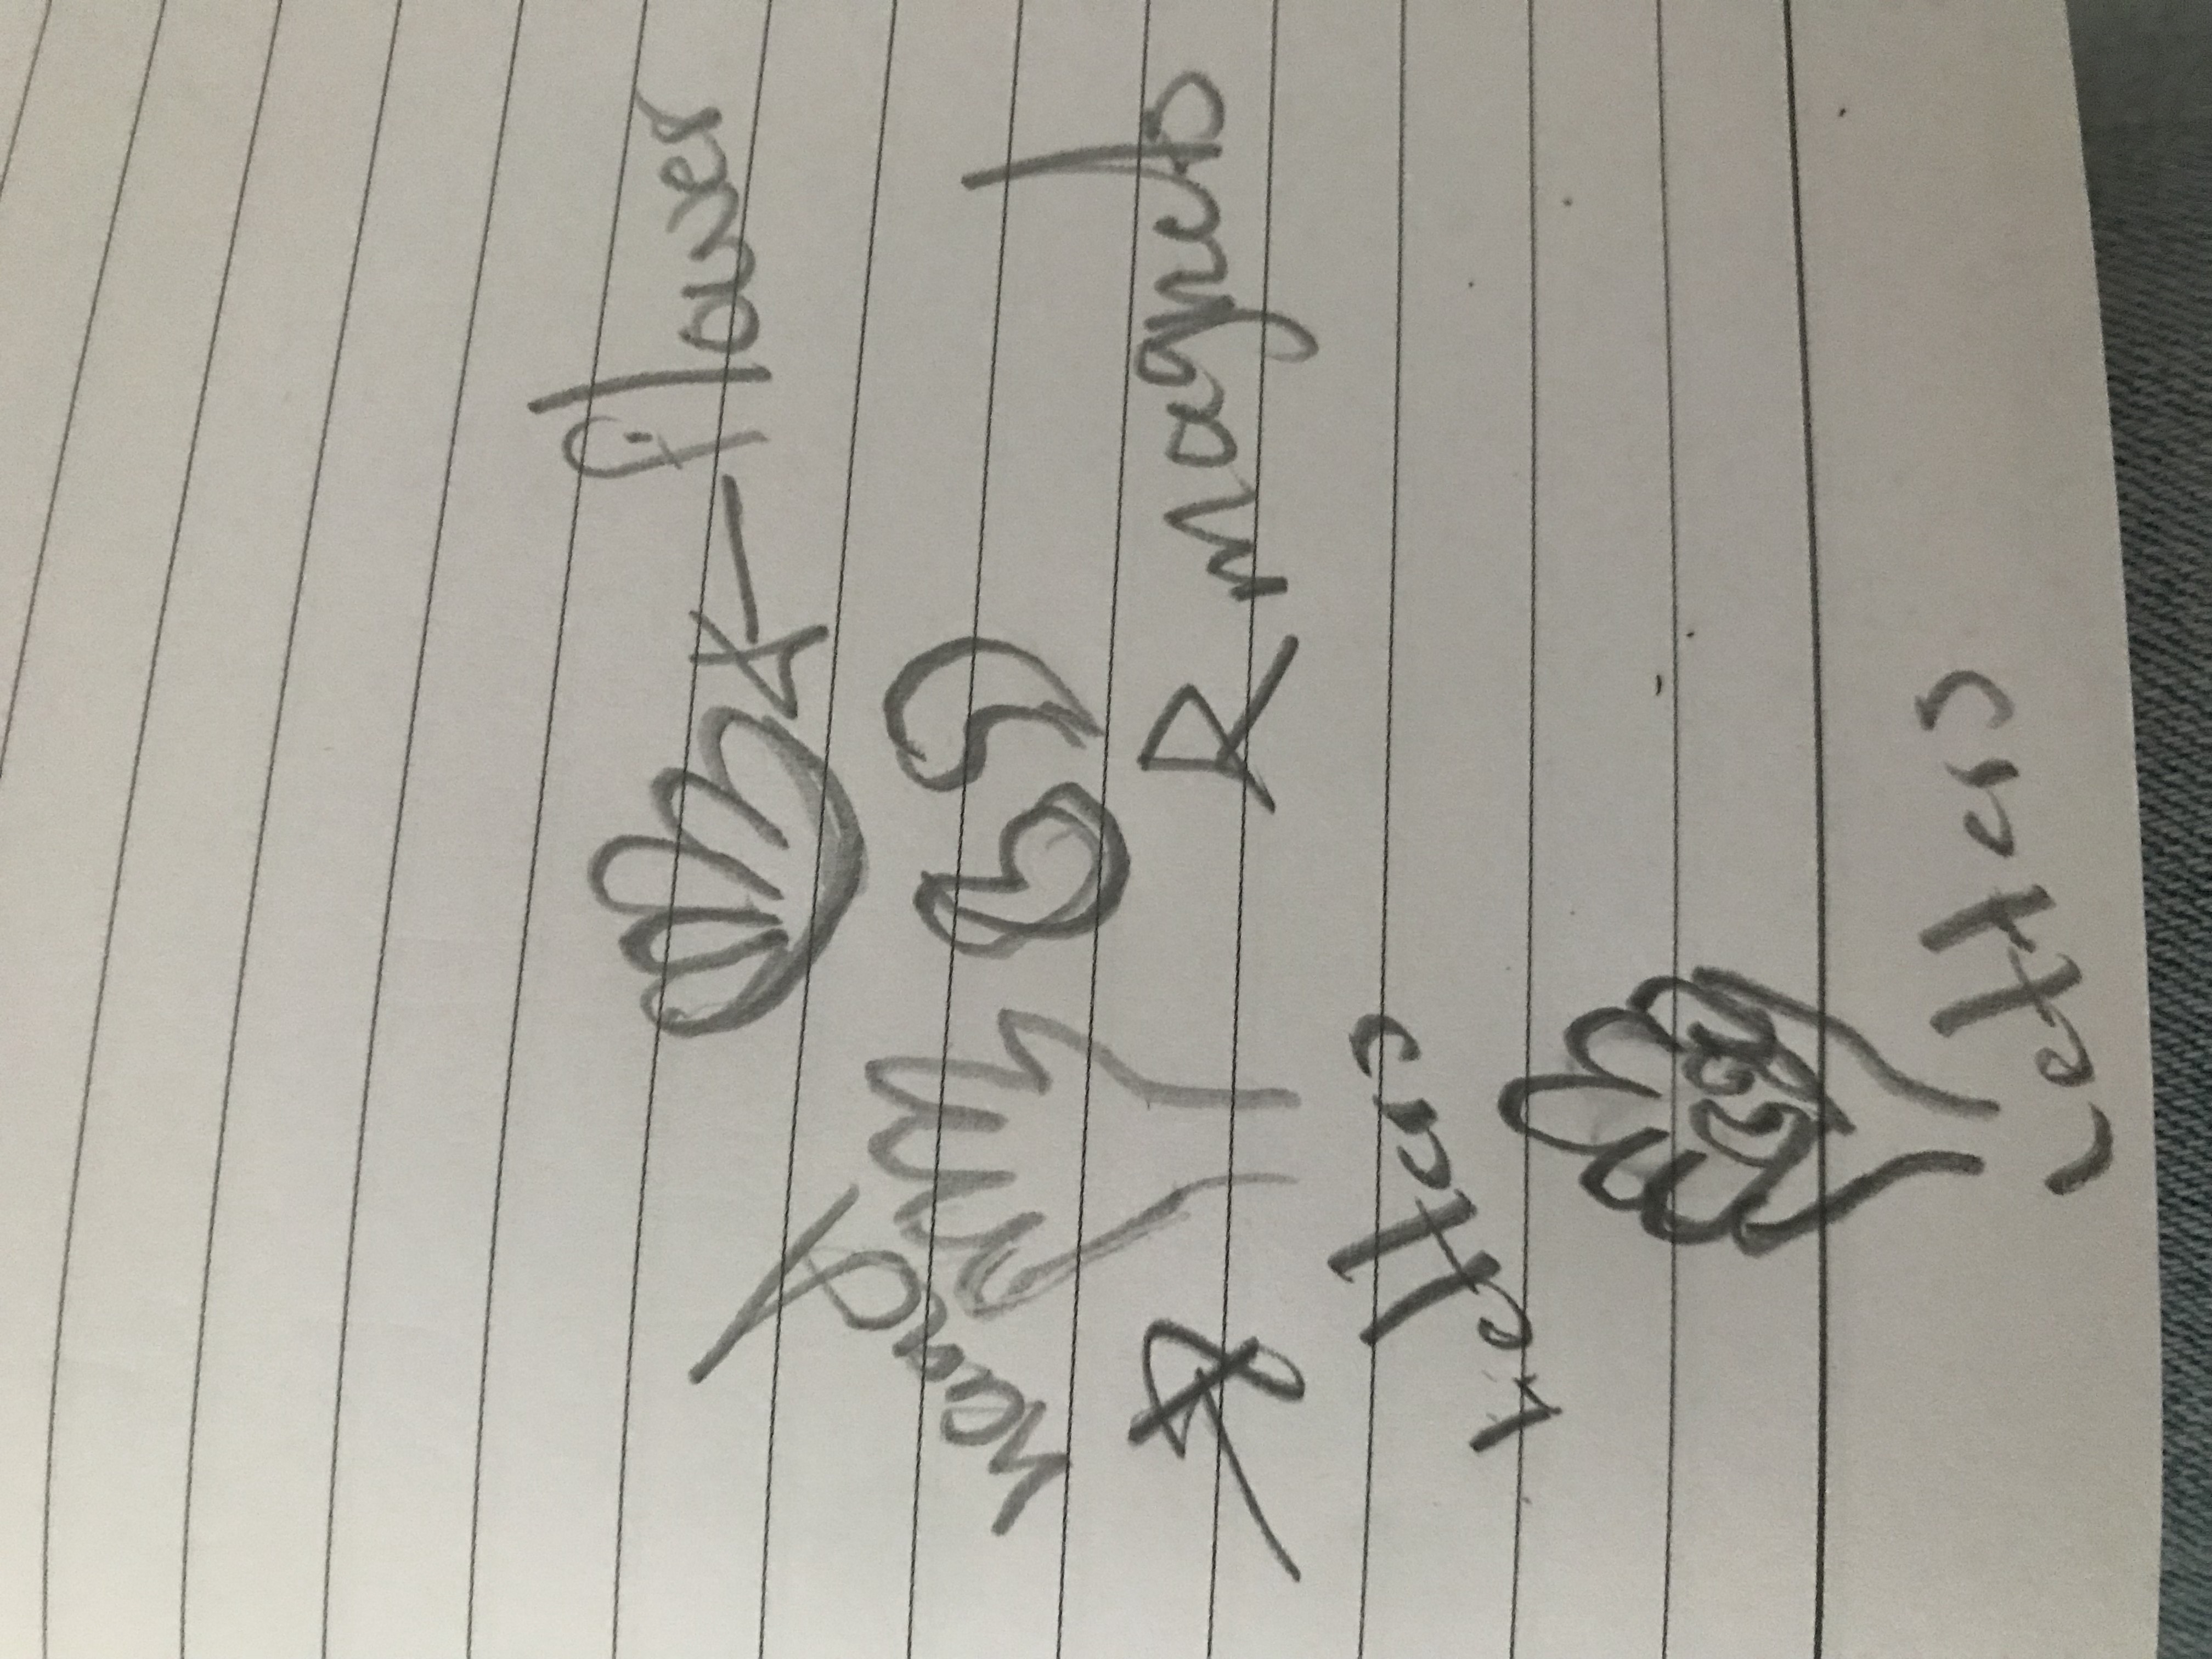 flower
hand
magnets
Letters
Letters